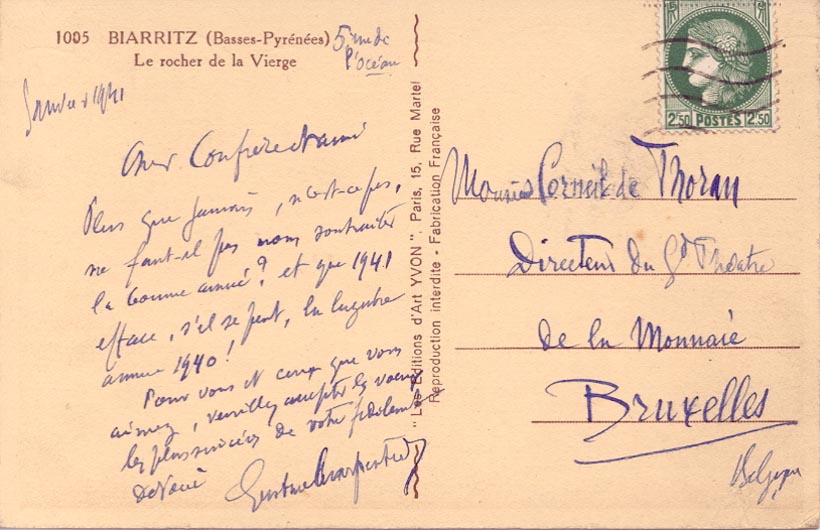 1005 BIARRITZ (Basses-Pyrénées)
Le rocher de la Vierge
5 rue de
l'océan
Janvier 1941
Cher Confrère et ami
Plus que jamais, n'est-ce pas,
ne faut-il pas nous souhaiter
la bonne année? et que 1941
efface, s'il se peut, la lugubre
année 1940!
Pour vous et ceux que vous
aimez, veuillez accepter les voeux
les plus sincères de votre fidèlement
dévoué Gustave Charpentier
"Les Editions d'Art YVON". Paris, 15, Rue Martel
Reproduction interdite - Fabrication Française
2,50 POSTES 2,50
Monsieur Corneil de Thoran
Directeur du Gd Théatre
de la Monnaie
Bruxelles
Belgique